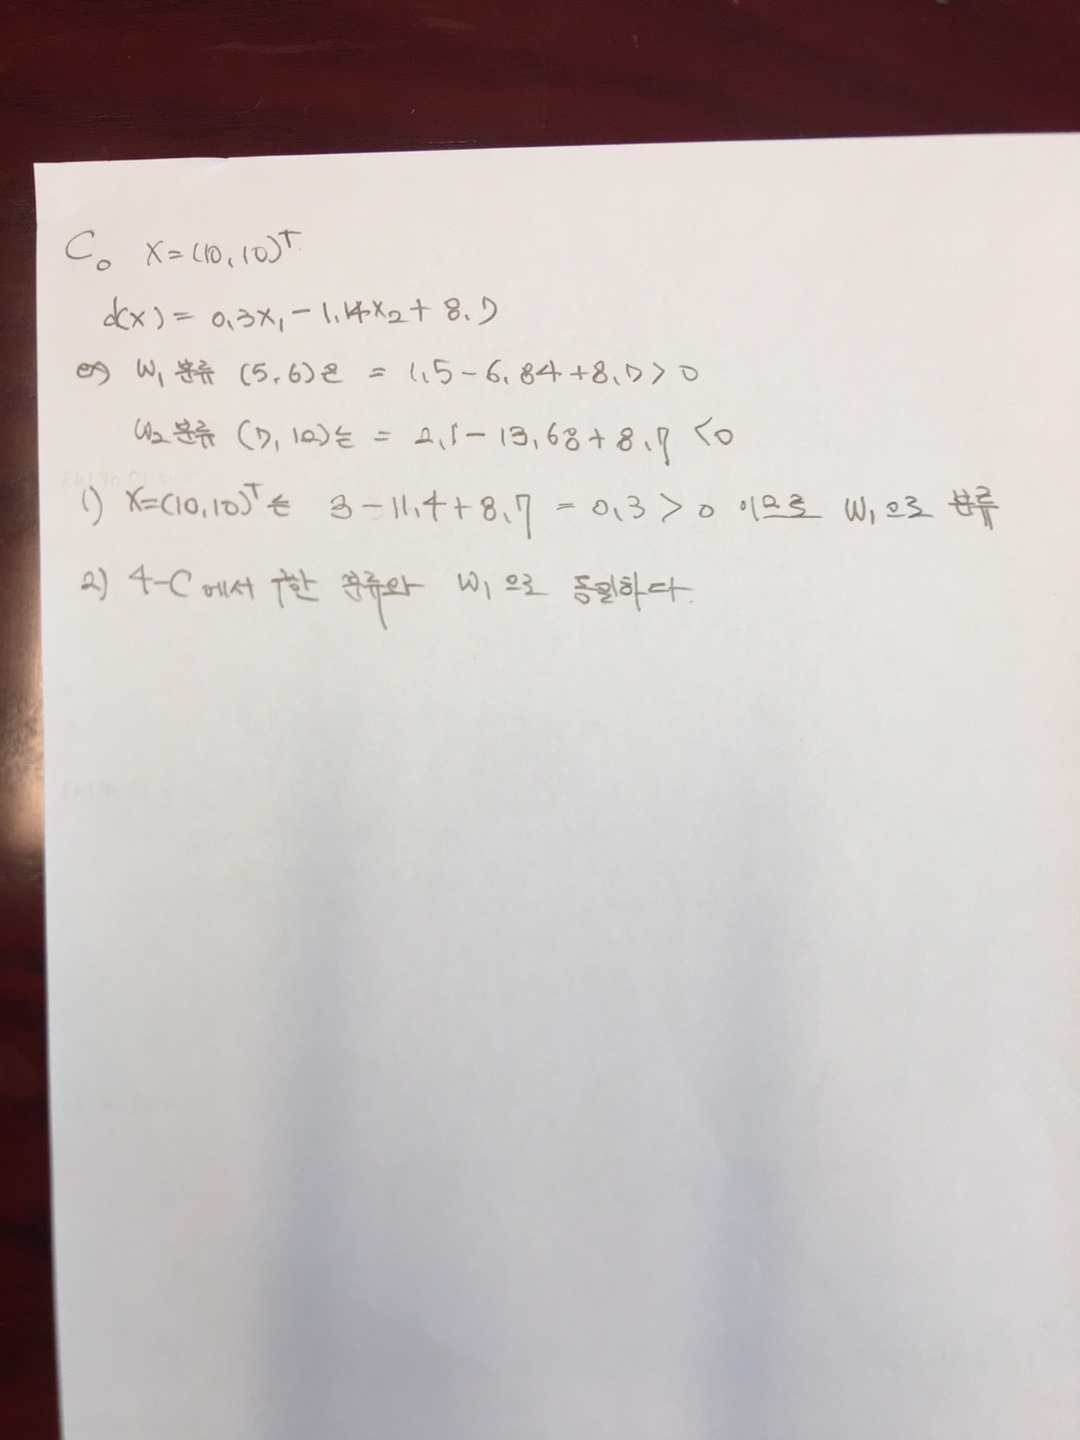 C. X=(10,10)ᵀ
d(x) = 0.3x₁ - 1.14x₂ + 8.7
ex) W₁ 분류 (5,6)은 = 1.5 - 6.84 + 8.7 > 0
W₂ 분류 (7,12)는 = 2.1 - 13.68 + 8.7 < 0
1) X=(10,10)ᵀ는 3 - 11.4 + 8.7 = 0.3 > 0 이므로 W₁으로 분류
2) 4-C에서 구한 분류와 W₁으로 동일하다.